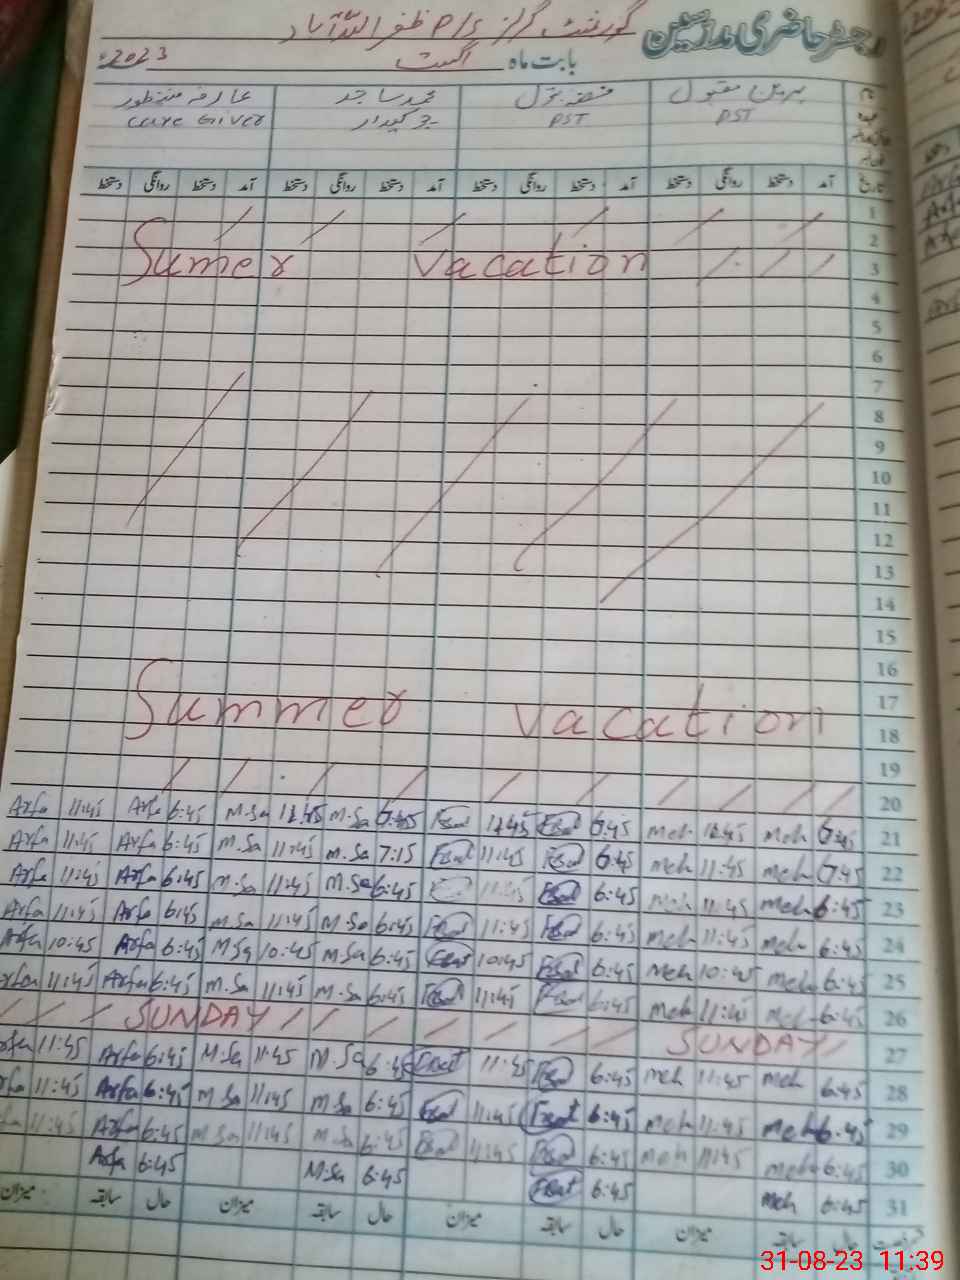 رجسٹر حاضری مدرسین گورنمنٹ گرلز P/S ظفر اللہ آباد
بابت ماہ اگست 2023ء
مقبول محمد ساجد عارفہ منظور
PST PST چوکیدار Care Giver
تاریخ آمد دستخط روانگی دستخط آمد دستخط روانگی دستخط آمد دستخط روانگی دستخط آمد دستخط روانگی دستخط
1
2
3 Sumer vacation
4
5
6
7
8
9
10
11
12
13
14
15
16
17 Summer vacation
18
19
20
21 Arfa 11:45 Arfa 6:45 M.Sa M.Sa 6:45 meh meh
22 Arfa 11:45 Arfa 6:45 M.Sa 11:45 M.Sa 7:15 11:45 6:45 meh 11:45 meh
23 Arfa 11:45 Arfa 6:45 M.Sa 11:45 M.Sa 6:45 11:45 6:45 meh 11:45 meh 6:45
24 Arfa 11:45 Arfa 6:45 M.Sa 11:45 M.Sa 6:45 11:45 6:45 meh 11:45 meh 6:45
25 Arfa 10:45 Arfa 6:45 M.Sa 10:45 M.Sa 6:45 10:45 6:45 meh 10:45 meh 6:45
26 Arfa 11:45 Arfa 6:45 M.Sa 11:45 M.Sa 6:45 11:45 6:45 meh 11:45 meh 6:45
27 SUNDAY SUNDAY
28 Arfa 11:45 Arfa 6:45 M.Sa 11:45 M.Sa 6:45 11:45 6:45 meh 11:45 meh 6:45
29 Arfa 11:45 Arfa 6:45 M.Sa 11:45 M.Sa 6:45 11:45 6:45 meh 11:45 meh 6:45
30 11:45 Arfa 6:45 M.Sa 11:45 M.Sa 6:45 11:45 6:45 meh 11:45 meh 6:45
31 Arfa 6:45 M.Sa 6:45 6:45 meh 6:45
حال سابقہ میزان حال سابقہ میزان حال سابقہ میزان حال سابقہ میزان
31-08-23 11:39